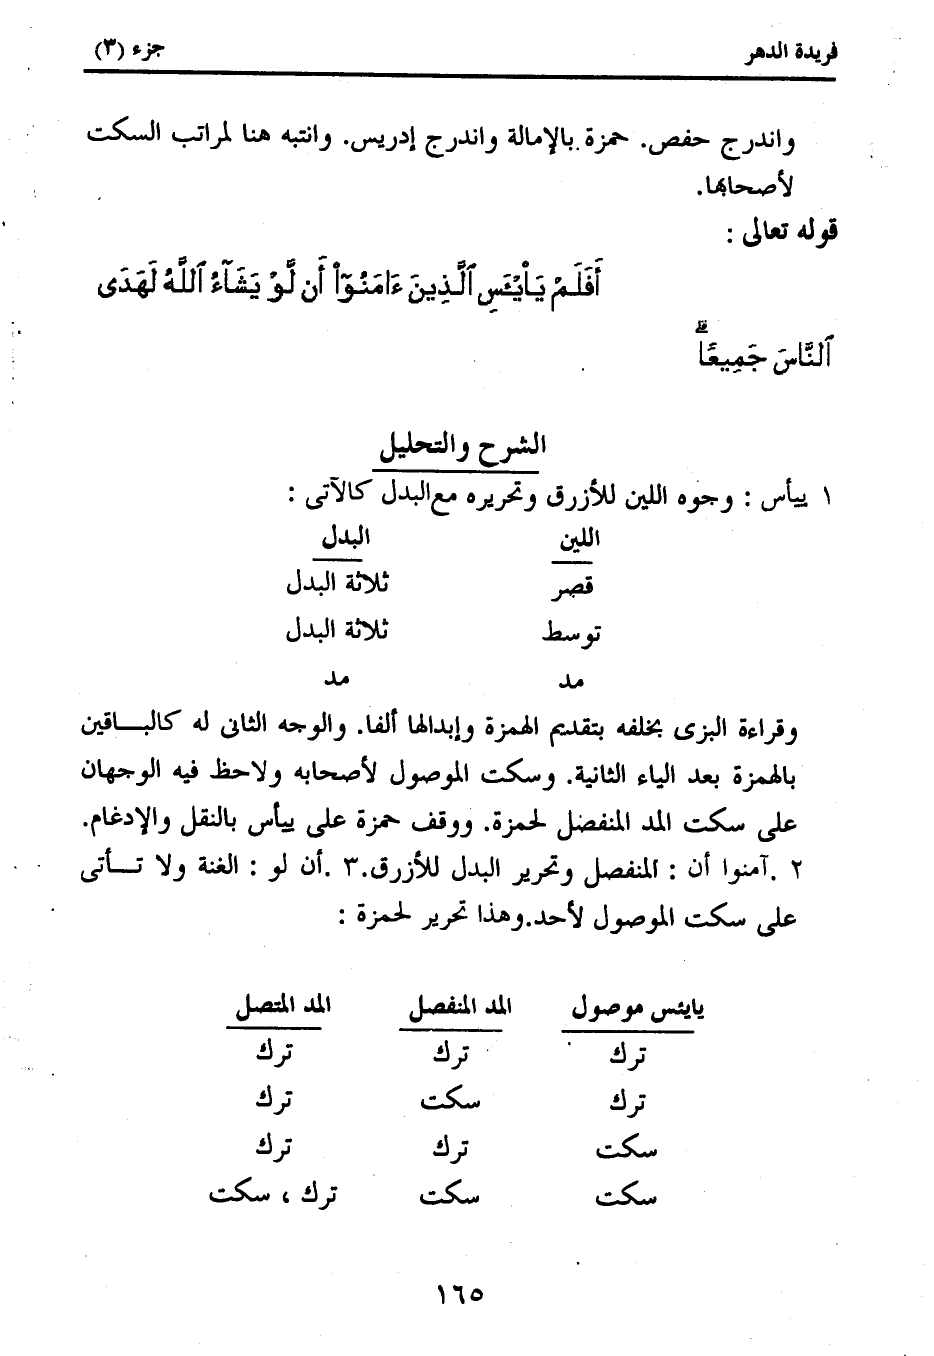 فريدة الدهر جزء (٣)
واندرج حفص. حمزة بالإمالة واندرج إدريس. وانتبه هنا لمراتب السكت
لأصحابها.
قوله تعالى :
أَفَلَمْ يَاْيْـَٔسِ ٱلَّذِينَ ءَامَنُوٓاْ أَن لَّوْ يَشَآءُ ٱللَّهُ لَهَدَى
ٱلنَّاسَ جَمِيعًاۗ
الشرح والتحليل
١ ييأس : وجوه اللين للأزرق وتحريره مع البدل كالآتى :
اللين البدل
قصر ثلاثة البدل
توسط ثلاثة البدل
مد مد
وقراءة البزى بخلفه بتقديم الهمزة وإبدالها ألفا. والوجه الثانى له كالبـــاقين
بالهمزة بعد الياء الثانية. وسكت الموصول لأصحابه ولاحظ فيه الوجهان
على سكت المد المنفصل لحمزة. ووقف حمزة على ييأس بالنقل والإدغام.
٢ .آمنوا أن : المنفصل وتحرير البدل للأزرق.٣ .أن لو : الغنة ولا تـــأتى
على سكت الموصول لأحد.وهذا تحرير لحمزة :
يايئس موصول المد المنفصل المد المتصل
ترك ترك ترك
ترك سكت ترك
سكت ترك ترك
سكت سكت ترك ، سكت
١٦٥